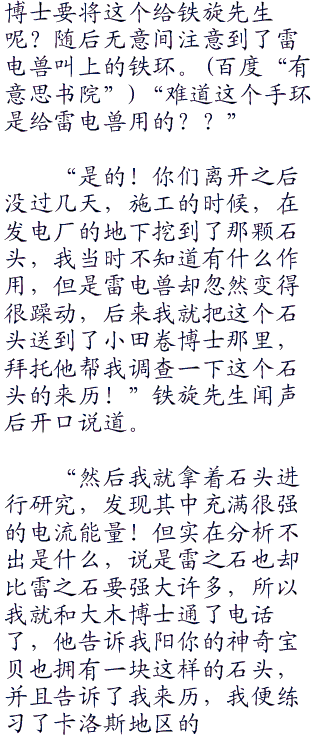 博士要将这个给铁旋先生
呢？随后无意间注意到了雷
电兽叫上的铁环。(百度“有
意思书院”)“难道这个手环
是给雷电兽用的？？”
“是的！你们离开之后
没过几天，施工的时候，在
发电厂的地下挖到了那颗石
头，我当时不知道有什么作
用，但是雷电兽却忽然变得
很躁动，后来我就把这个石
头送到了小田卷博士那里，
拜托他帮我调查一下这个石
头的来历！”铁旋先生闻声
后开口说道。
“然后我就拿着石头进
行研究，发现其中充满很强
的电流能量！但实在分析不
出是什么，说是雷之石也却
比雷之石要强大许多，所以
我就和大木博士通了电话
了，他告诉我阳你的神奇宝
贝也拥有一块这样的石头，
并且告诉了我来历，我便练
习了卡洛斯地区的